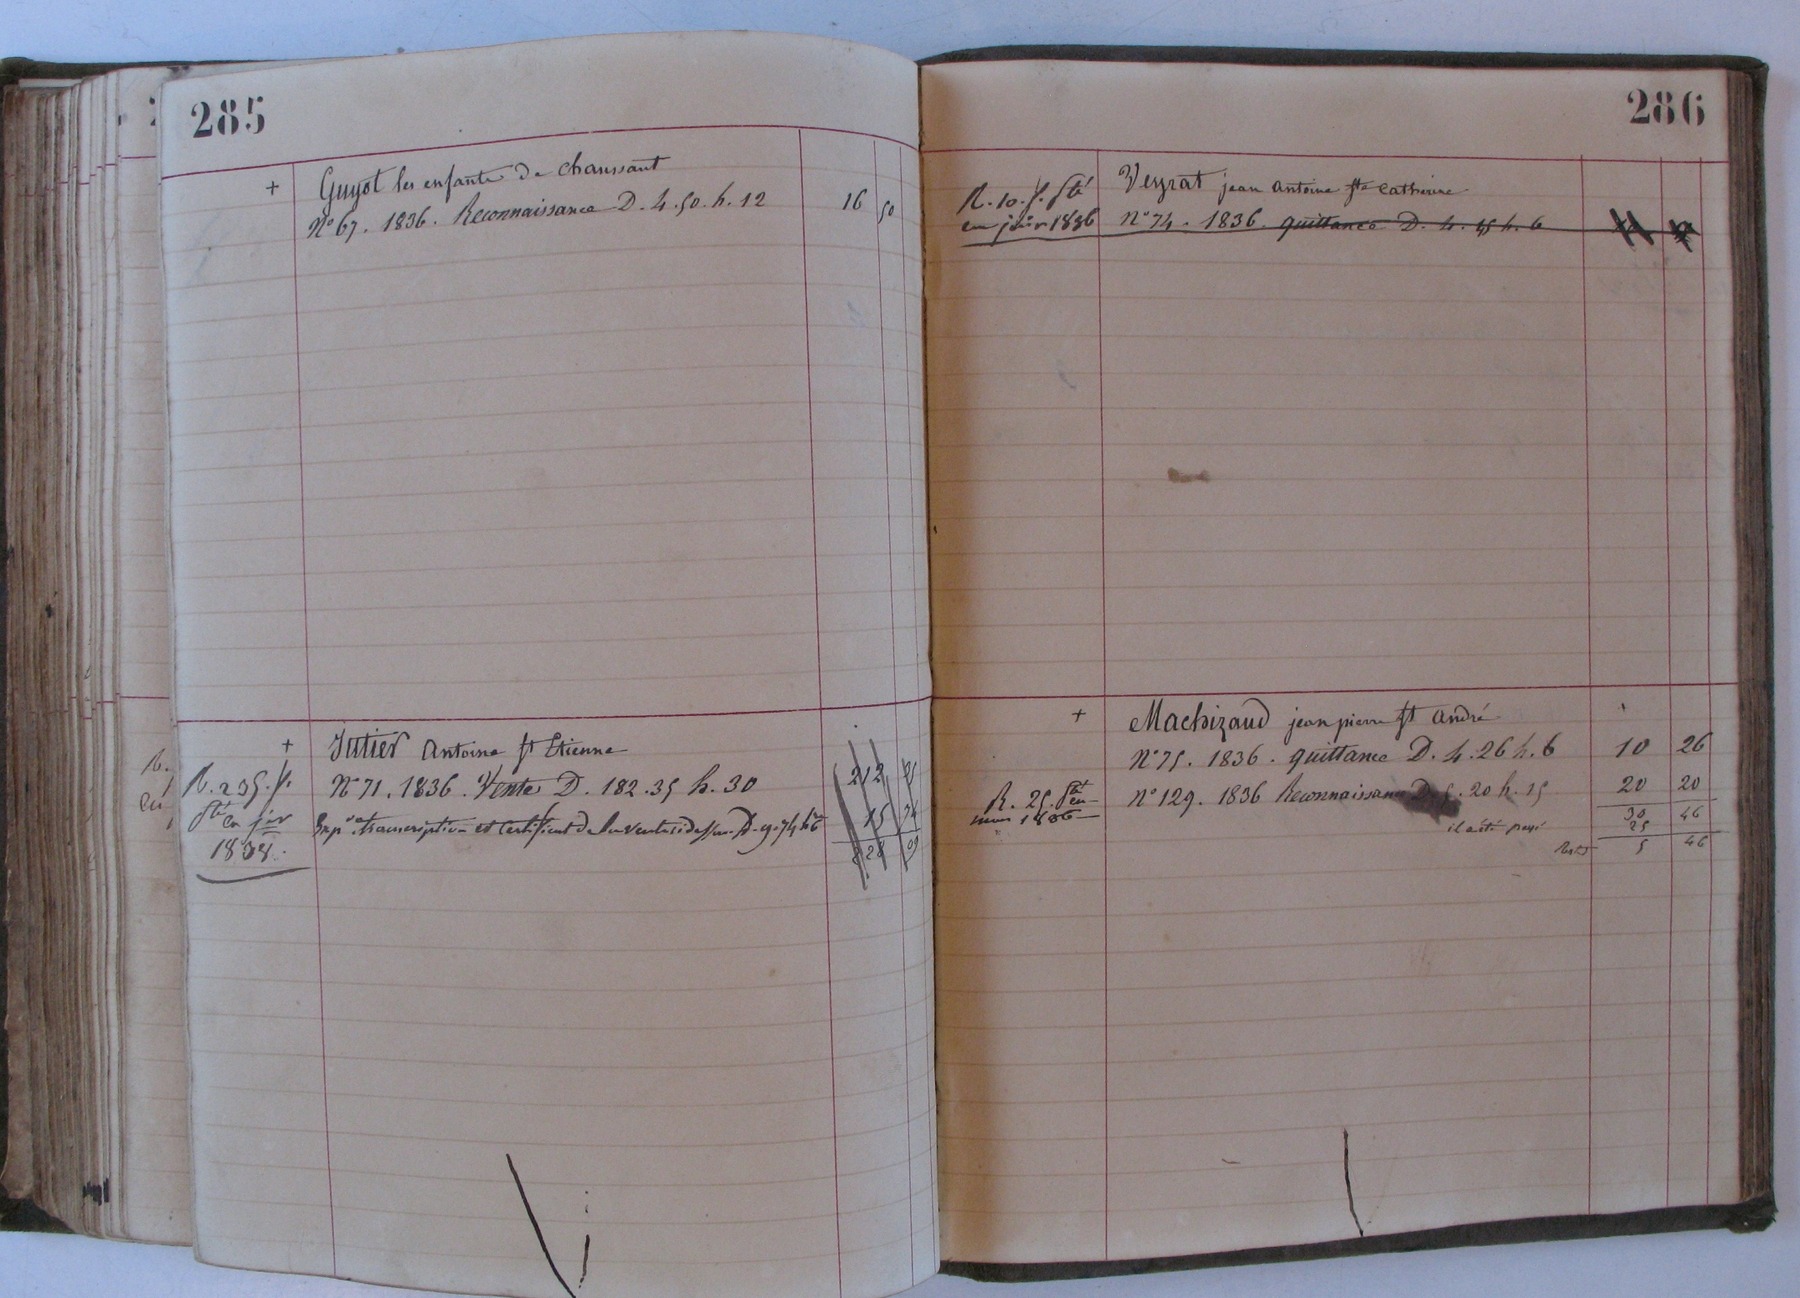 285
+ Guyot les enfants de Chaussant
N° 67. 1836. Reconnaissance D. 4.50. h. 12 16 50
+ Jutier Antoine St Etienne
R. 235. f. N° 71. 1836. Vente D. 182.35 h. 30 212 35
St en jer transcription et Certificat de la vente ci dessus D. 9.74 h 6 15 74
1838. 228 09
286
Veyrat jean Antoine Ste Catherine
R. 10. f.
en 1836 N° 74. 1836. quittance D. 4. 45 h. 6
+ Machizaud jean pierre St André
N° 75. 1836. quittance D. 4.26 h. 6 10 26
R. 25. St en N° 129. 1836 Reconnaissance D. 5.20 h. 15 20 20
1836 30 46
il a été payé 25
Reste 5 46